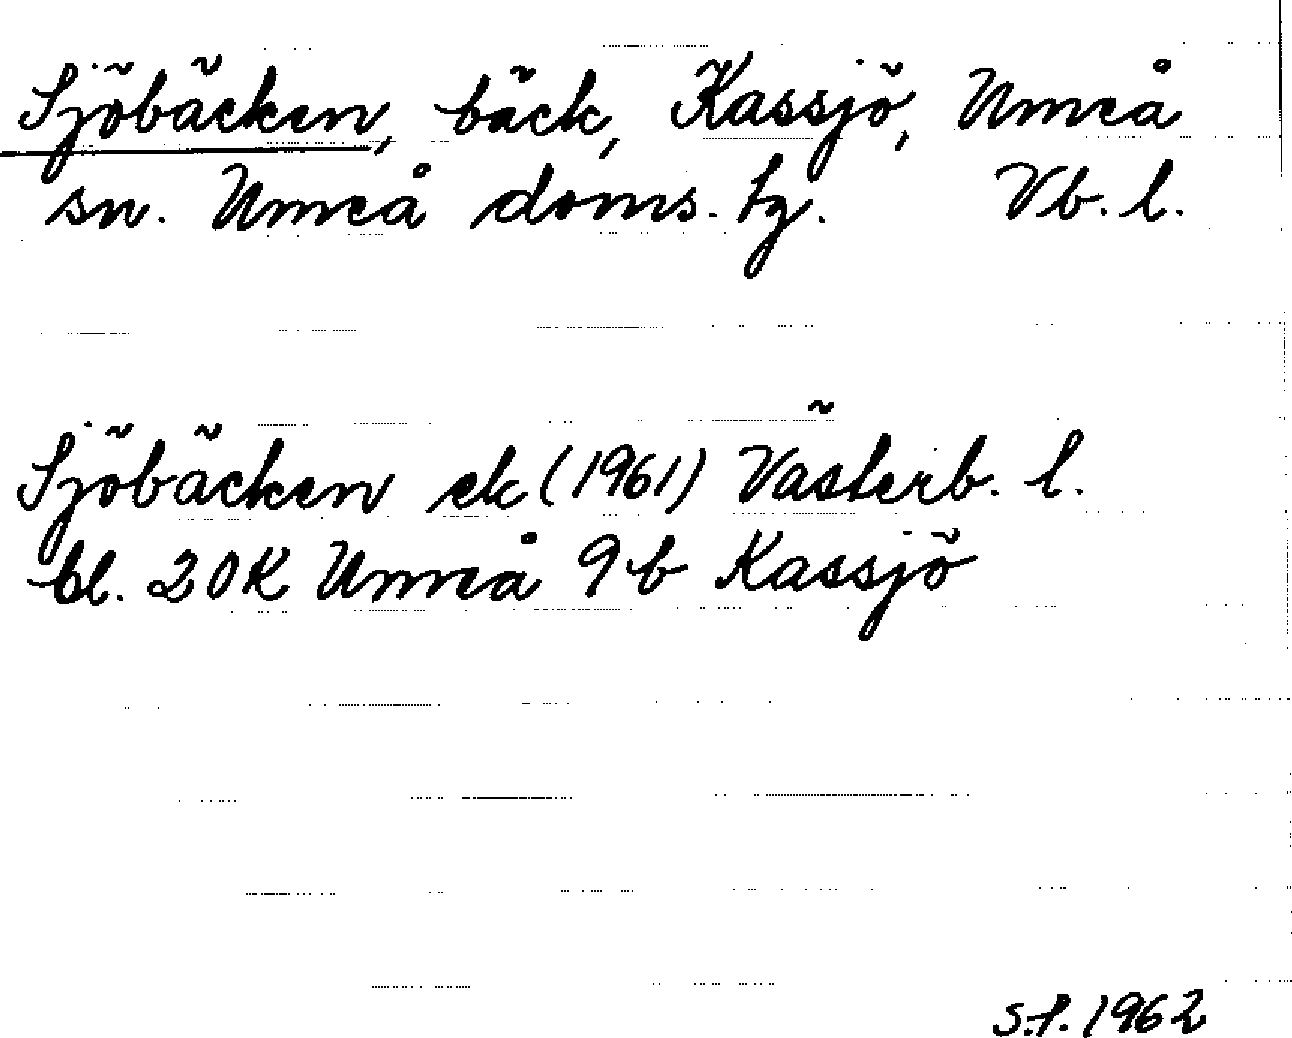 Sjöbäcken, bäck, Kassjö, Umeå
sn. Umeå doms. tg. Vb. l.
Sjöbäcken ek (1961) Västerb. l.
bl. 20K Umeå 9b Kassjö
S.f. 1962